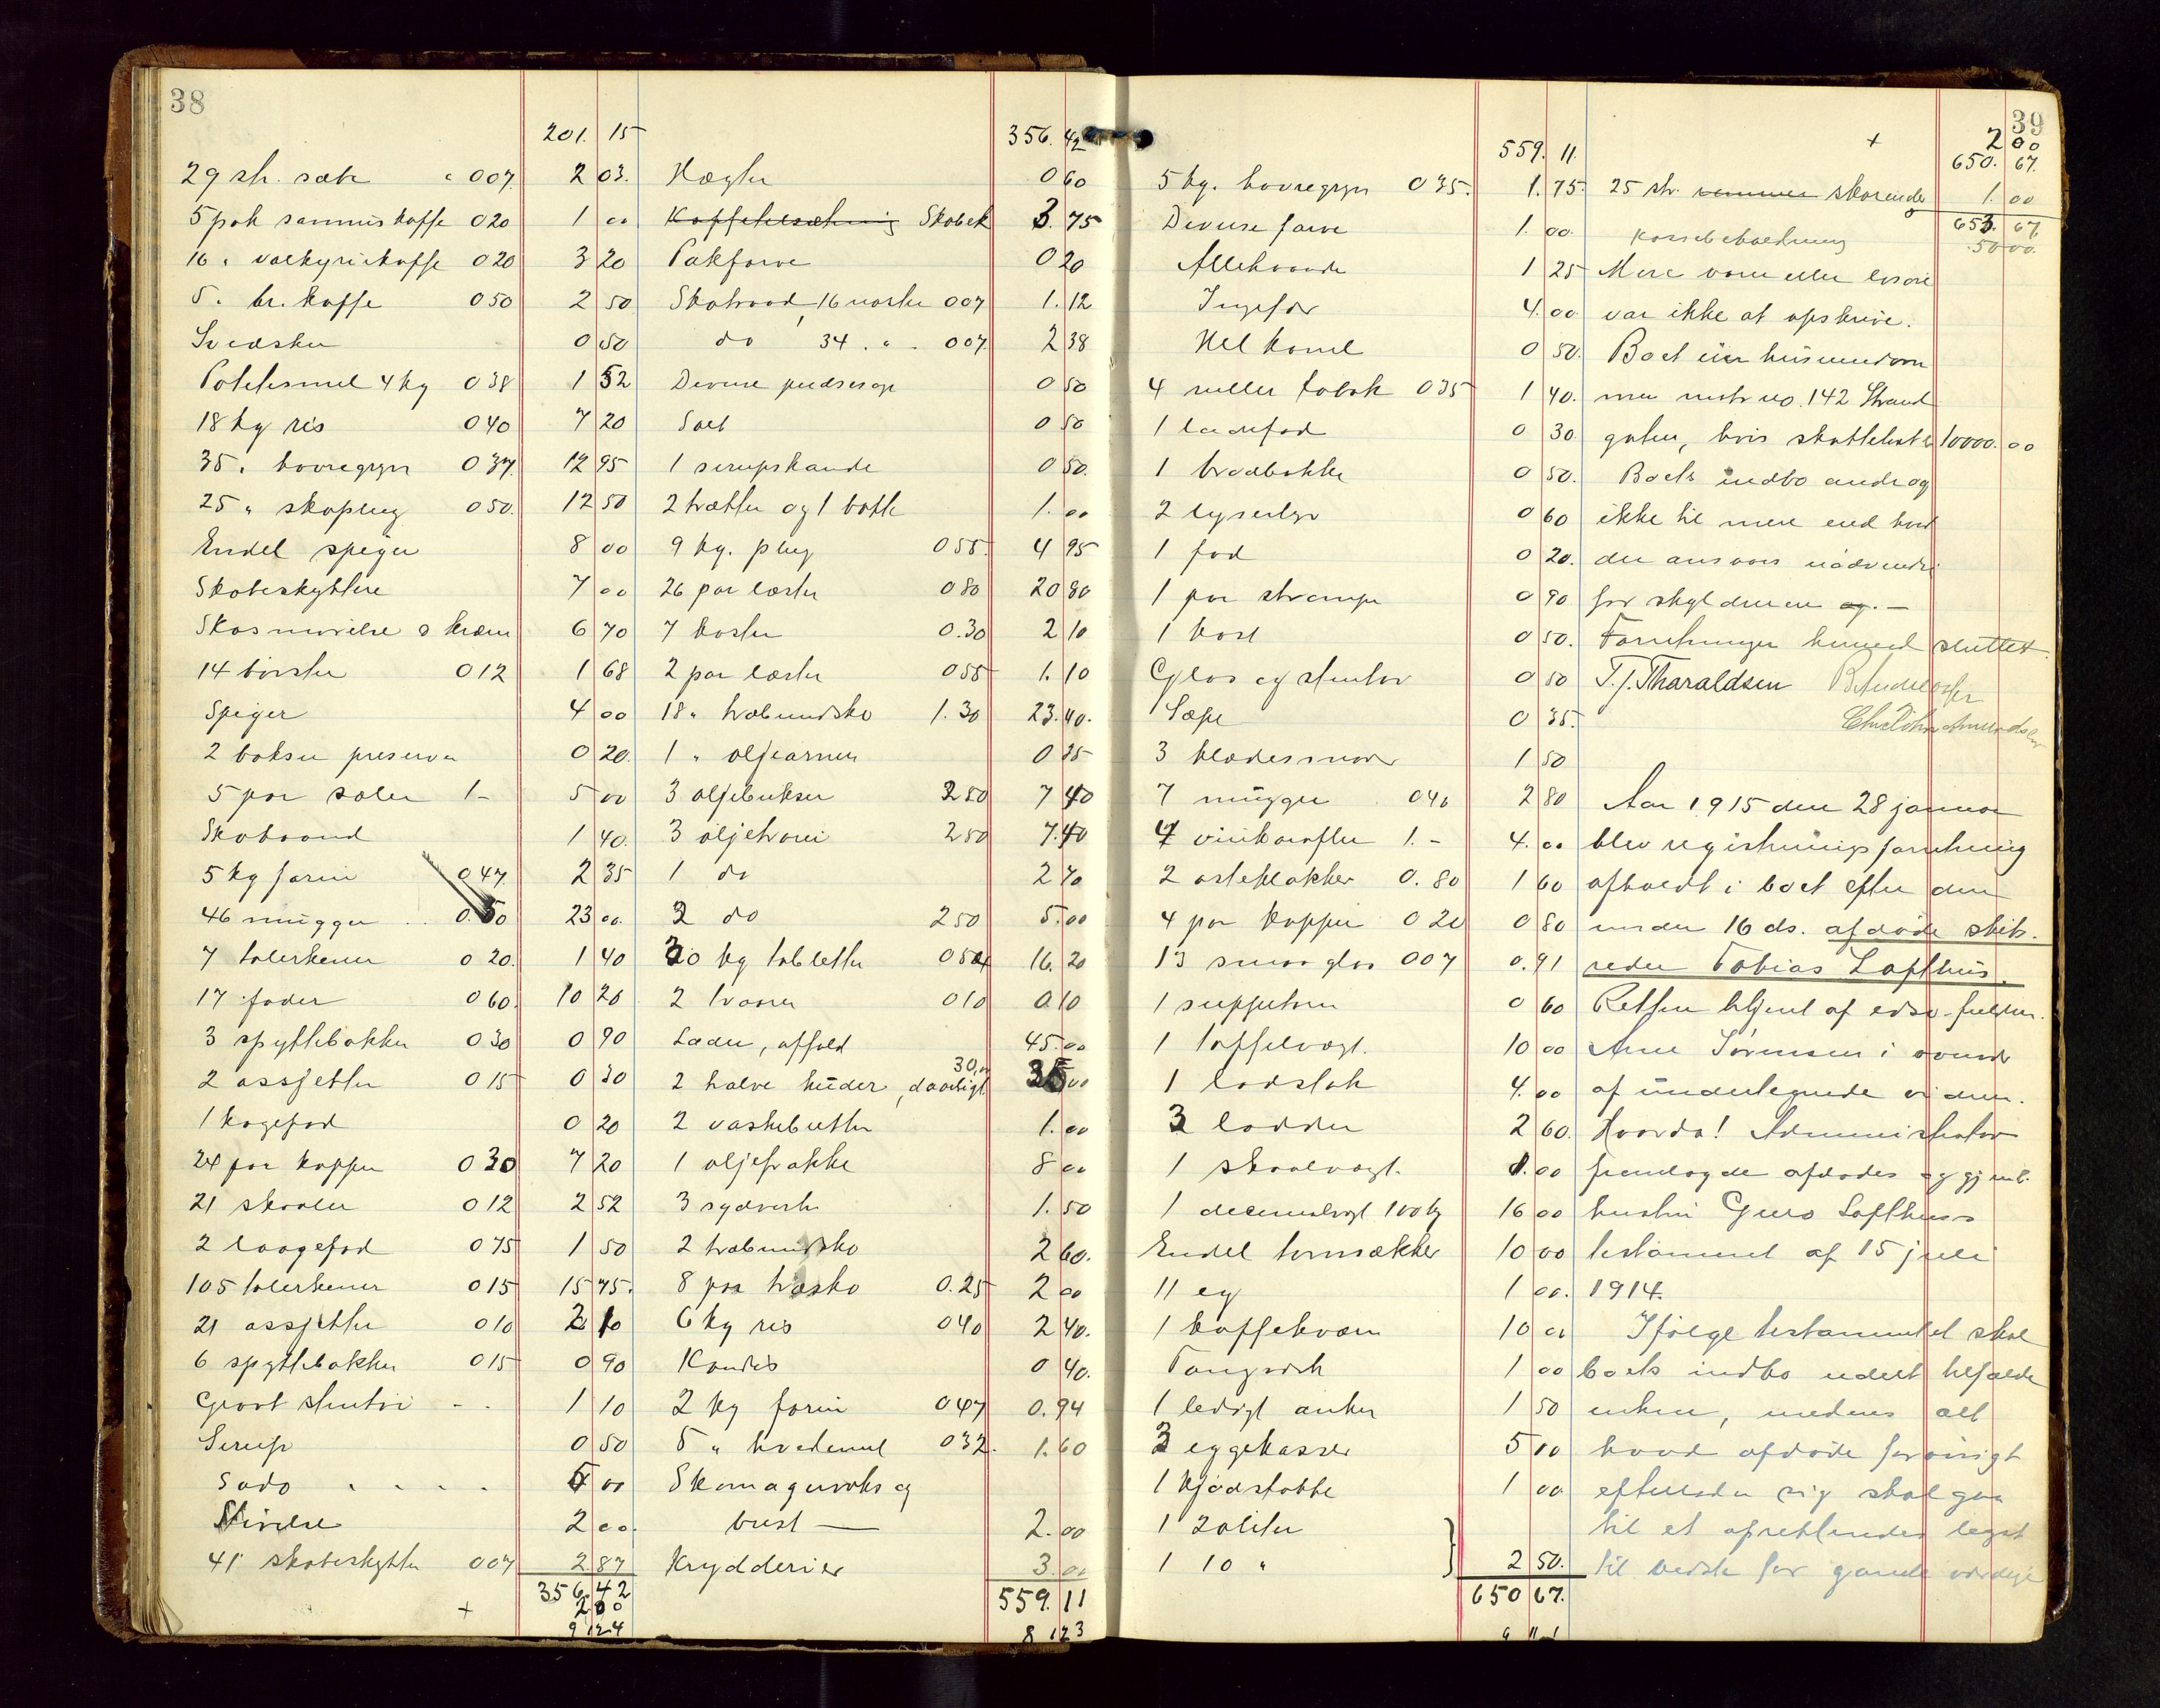 38
201. 15
29 stk. sæbe " 007. 2 03.
5 pak sanmiskaffe 020 1 00
16 " valkyriekaffe 020 3 20
5 " br. kaffe 050 2 50
Svedsker 0 50
Potetesmel 4 kg 038 1 52
18 kg ris 040 7 20
35 " havregryn 037. 12 95
25 " skoplug 050. 12 50
Endel spiger 8 00
Skobeskyttere 7 00
Skosmørelse o kræm 6 70
14 børster 012 1 68
Spiger 4 00
2 bokser preserver 0 20.
5 par saler 1- 5 00
Skobaand 1 40.
5 kg farin 047. 2 35
46 mugger 0.50 23 00.
7 talerkener 0 20. 1 40
17 fader 0 60. 10 20
3 spyttebakker 0 30 0 90
2 assjetter 0 15 0 30
1 kagefad 0 20
24 par kopper 0 30 7 20
21 skaaler 0 12 2 52
2 laagefad 0 75 1 50
105 talerkener 0 15 15 75.
21 assjetter 0 10 2 10
6 spyttebakker 0 15 0 90
Groot stentøi - - 1 10
Serup 0 50
Soda 5 00
Stivelse 2 00.
41 skobeskytter 007 2.87
356.42
+ 200
9 124
356.42
Hægter 0 60
Skobek 3.75
Pakfarve 0 20
Skotraad, 16 nøster 007 1.12
do 34 " " 007 2 38
Diverse pudsesager 0 50
Salt 0 50
1 serupskande 0 50.
2 trætter og 1 bøtte 1.00
9 kg. plug 055. 4 95
26 par læster 0 80 20 80
7 koster 0.30 2 10
2 par læster 055 1.10
18 " træbundsko 1.30 23.40.
1 " oljeærmer 0 35
3 oljebukser 250 7 40
3 oljetrøier 250 7.40
1 do 2 70
2 do 250 5.00
30 kg tabletter 054 16.20
2 traaer 010 0.10
Læder, affald 45.00
30,00
2 halve huder, daarligt 35 00
2 vaskebøtter 1.00
1 oljefrakke 8 00
3 sydvester 1.50
2 træbundsko 2 60.
8 par træsko 0.25 2 00
6 kg ris 040 2 40.
Kandis 0 40.
2 kg farin 047 0.94
5 " hvedemel 032. 1.60
Skomagervoks og
bust — 2.00
Krydderier 3.00
559.11
8 123
559. 11.
5 kg. havregryn 035. 1.75.
Diverse farve 1.00.
Allehaande 1 25
Ingefær 4.00
Hel kanel 0 50.
4 ruller tobak 035 1 40.
1 lædefad 0 30.
1 brødbakke 0 50.
2 lysestager 0 60
1 fad 0 20.
1 par strømper 0 90
1 kost 0 50.
Glas og stentøi 0 50
Sæpe 0 35.
3 klædessnorer 1 50
7 mugger 040 2 80
4 vinkarafler 1.- 4.00
2 osteklokker 0.80 1 60
4 par kopper 0 20 0 80
13 smaa glas 007 0.91
1 suppeterin 0 60
1 taffelvægt. 10 00
1 lodstok 4.00
3 lodder 2 60.
1 skaalvægt. 8.00
1 decimalvægt 100 kg 16 00
Endel tomsækker 10 00
11 eg 1 00.
1 kaffekværn 10 00
1 00
1 ledigt anker 1 50
3 eggekasser 5 00
1 kjødstabbe 1 00
1 20 liter
1 10 " } 2 50.
650 67.
39
+ 2 00
650. 67.
25 stk. remmer skorender 1.00
653. 67.
kassebeholdning 50 00.
Mere varer eller løsøre
var ikke at opskrive.
Boet eier huseiendom
men matr no. 142 Strand
gaten, hvis skattetakst er 10000.00
Boets indbo androg
ikke til mere end hvad
der ansaaes nødvendig
for skyldneren og. —
Forretningen hermed sluttet.
T. J. Tharaldsen
Aar 1915 den 28 januar
blev registreringsforretning
afholdt i boet efter den
under 16 ds. afdøde skibs-
reder Tobias Lofthus.
Retten betjent af edsv. fuldm.
Arne Sørensen i overvær
af undertegnede vidner.
Hvorda! Administrator
fremlagde afdødes og gjenl.
hustru Guro Lofthuss
testament af 15 juli
1914.
Ifølge testamentet skal
boets indbo udelt tilfalde
enken, medens alt
hvad afdøde forøvrigt
efterlader sig skal gaa
til et oprettendes legat
til bedste for gamle værdige